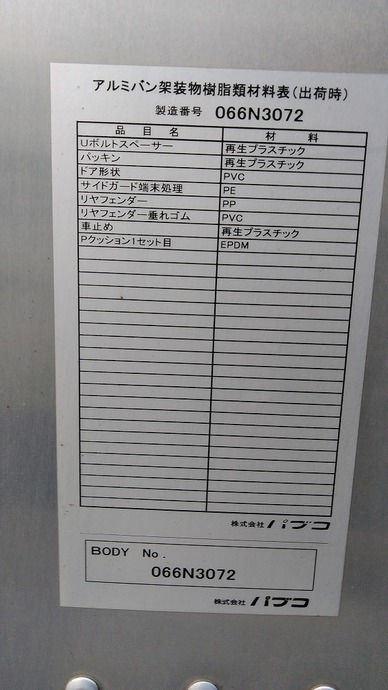 アルミバン架装物樹脂類材料表(出荷時)
製造番号 066N3072
品目名 材料
Uボルトスペーサー 再生プラスチック
パッキン 再生プラスチック
ドア形状 PVC
サイドガード端末処理 PE
リヤフェンダー PP
リヤフェンダー垂れゴム PVC
車止め 再生プラスチック
Pクッション1セット目 EPDM
株式会社 パブコ
BODY No.
066N3072
株式会社 パブコ